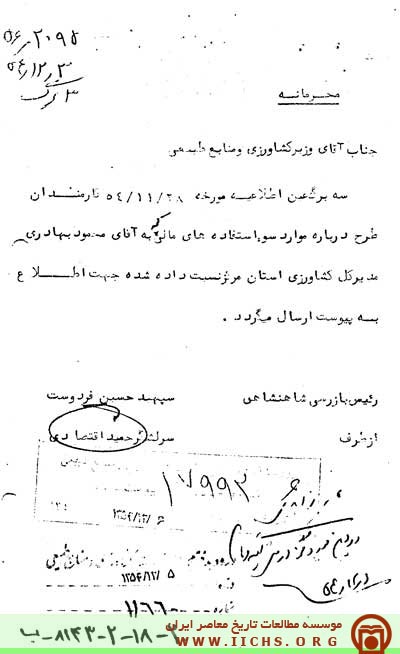 ۲۰۹۵
۳ برگ
محرمانه
جناب آقای وزیر کشاورزی و منابع طبیعی
سه برگ عین اطلاعیه مورخه ۵۴/۱۱/۲۸ کارمندان
طرح درباره موارد سوء استفاده های مالی که به آقای محمود بهادری
مدیرکل کشاورزی استان مرکز نسبت داده شده جهت اطلاع
به پیوست ارسال میگردد .
رئیس بازرسی شاهنشاهی سپهبد حسین فردوست
از طرف سرلشگر حمید اقتصادی
۱۷۹۹۳
۱۳۵۴/۱۲/۶
۱۳۵۴/۱۲/۵
۱۱۶۶۰
۸۱۴۳-۲-۱۸-۲ ب
موسسه مطالعات تاریخ معاصر ایران
WWW.IICHS.ORG